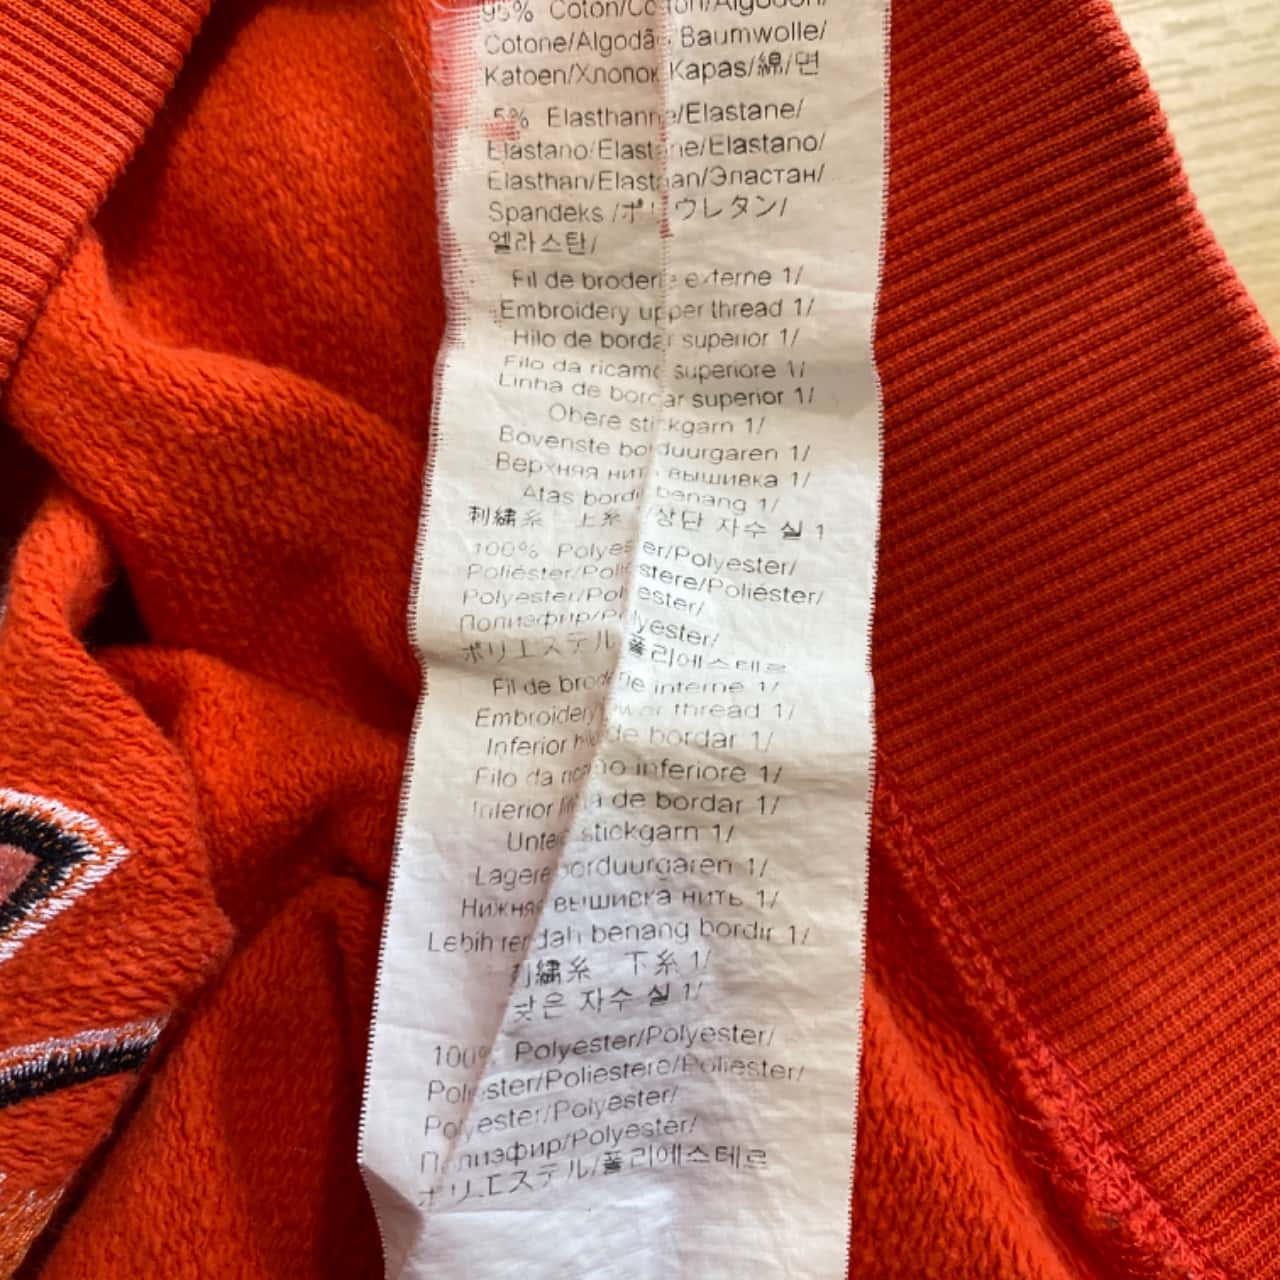 95% Coton/Cotton/Algodón/
Cotone/Algodão Baumwolle/
Katoen/Хлопок Kapas/綿/면
5% Elasthanne/Elastane/
Elastano/Elastane/Elastano/
Elasthan/Elastaan/Эластан/
Spandeks /ポリウレタン/
엘라스탄/
Fil de broderie externe 1/
Embroidery upper thread 1/
Hilo de bordar superior 1/
Filo da ricamo superiore 1/
Linha de bordar superior 1/
Obere stickgarn 1/
Bovenste borduurgaren 1/
Верхняя нить вышивка 1/
Atas bordir benang 1/
刺繍糸 上糸 /상단 자수 실 1
100% Polyester/Polyester/
Poliéster/Poliestere/Poliéster/
Polyester/Polyester/
Полиэфир/Polyester/
ポリエステル/폴리에스테르
Fil de broderie interne 1/
Embroidery lower thread 1/
Inferior hilo de bordar 1/
Filo da ricamo inferiore 1/
Inferior linha de bordar 1/
Untere stickgarn 1/
Lagere borduurgaren 1/
Нижняя вышивка нить 1/
Lebih rendah benang bordir 1/
刺繍糸 下糸 1/
낮은 자수 실 1/
100% Polyester/Polyester/
Poliéster/Poliestere/Poliéster/
Polyester/Polyester/
Полиэфир/Polyester/
ポリエステル/폴리에스테르